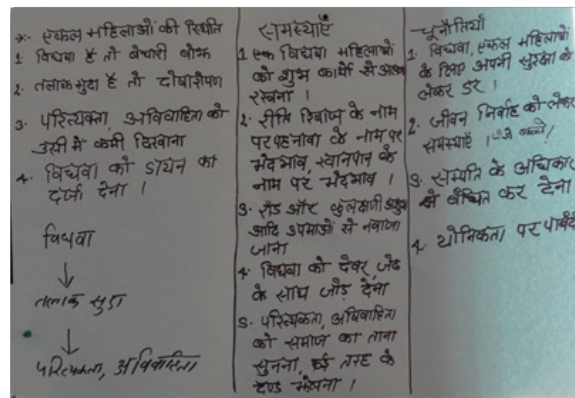 * एकल महिलाओं की स्थिति
1. विधवा है तो बेचारी बोझ
2. तलाक सुदा है तो दोषारोपण
3. परित्यक्ता, अविवाहिता को
उसी में कमी दिखाना
4. विधवा को डायन का
दर्जा देना ।
विधवा
↓
तलाक सुदा
↓
परित्यक्ता, अविवाहिता
समस्याएँ
1 एक विधवा महिलाओं
को शुभ कार्यो से अलग
रखना ।
2. रीति रिवाज के नाम
पर पहनावा के नाम पर
भेदभाव, खानपान के
नाम पर भेदभाव ।
3. रांड और कुलक्षणी अशुभ
आदि उपमाओं से नवाजा
जाना
4. विधवा को देवर, जेठ
के साथ जोड़ देना
5. परित्यक्ता, अविवाहिता
को समाज का ताना
सुनना, कई तरह के
दण्ड झेलना ।
चुनौतियाँ
1. विधवा, एकल महिलाओं
के लिए अपनी सुरक्षा को
लेकर डर ।
2. जीवन निर्वाह को लेकर
समस्याएँ ।
3. सम्पति के अधिकार
से वंचित कर देना
4. योनिकता पर पाबंदी